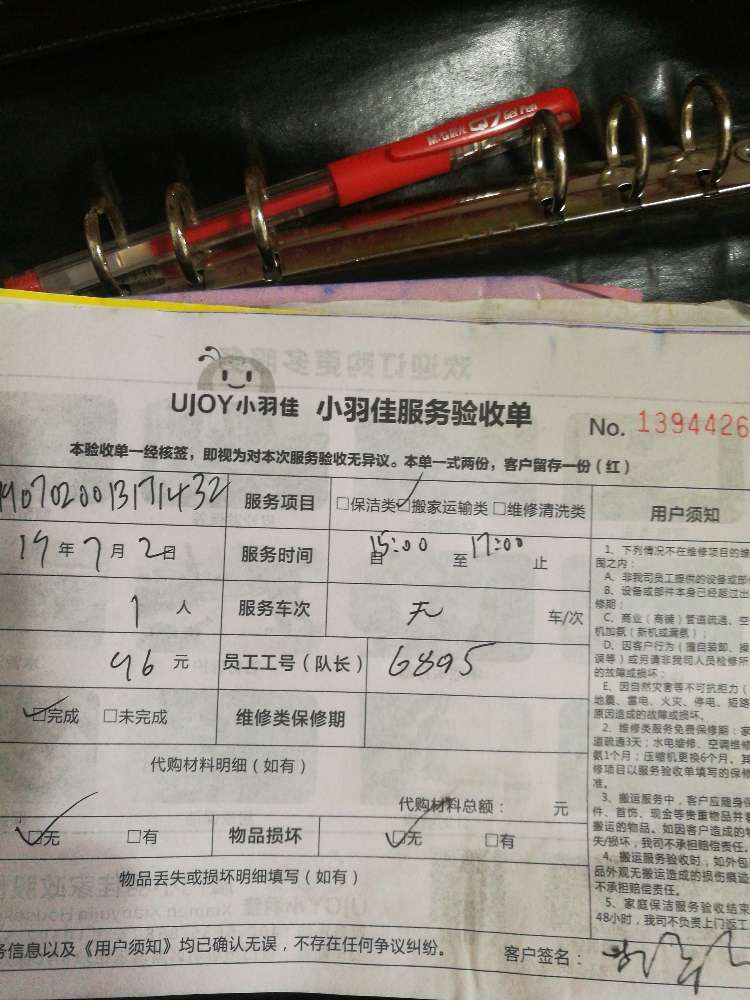 M&G晨光 Q7 Gel Pen
欢迎订购更多服务
UJOY小羽佳 小羽佳服务验收单 No. 1394426
本验收单一经核签，即视为对本次服务验收无异议。本单一式两份，客户留存一份（红）
服务项目 □保洁类 ☑搬家运输类 □维修清洗类 用户须知
19年7月2日 服务时间 自15:00至17:00止
1人 服务车次 无 车/次
96元 员工工号（队长） 6895
☑完成 □未完成 维修类保修期
代购材料明细（如有）
代购材料总额： 元
☑无 □有 物品损坏 ☑无 □有
物品丢失或损坏明细填写（如有）
务信息以及《用户须知》均已确认无误，不存在任何争议纠纷。 客户签名：
1、下列情况不在维修项目的维
围之内：
A、非我司员工提供的设备或部
B、设备或部件本身已经超过出
修期；
C、商业（商铺）管道疏通、空
机加氨（新机或漏氨）；
D、因客户行为（擅自装卸、操
误等）或另请非我司人员检修所
的故障或损坏；
E、因自然灾害等不可抗拒力（
地震、雷电、火灾、停电、短路
原因造成的故障或损坏。
2、维修类服务免费保修期：家
道疏通3天；水电维修、空调维修
氨1个月；压缩机更换6个月。其
修项目以服务验收单填写的保修
准。
3、搬运服务中，客户应随身保
件、首饰、现金等贵重物品并
搬运的物品。如因客户造成的
失/损坏，我司不承担赔偿责任。
4、搬运服务验收时，如外包
品外观无搬运造成的损伤痕迹
不承担赔偿责任。
5、家庭保洁服务验收结束
48小时，我司不负责上门返工